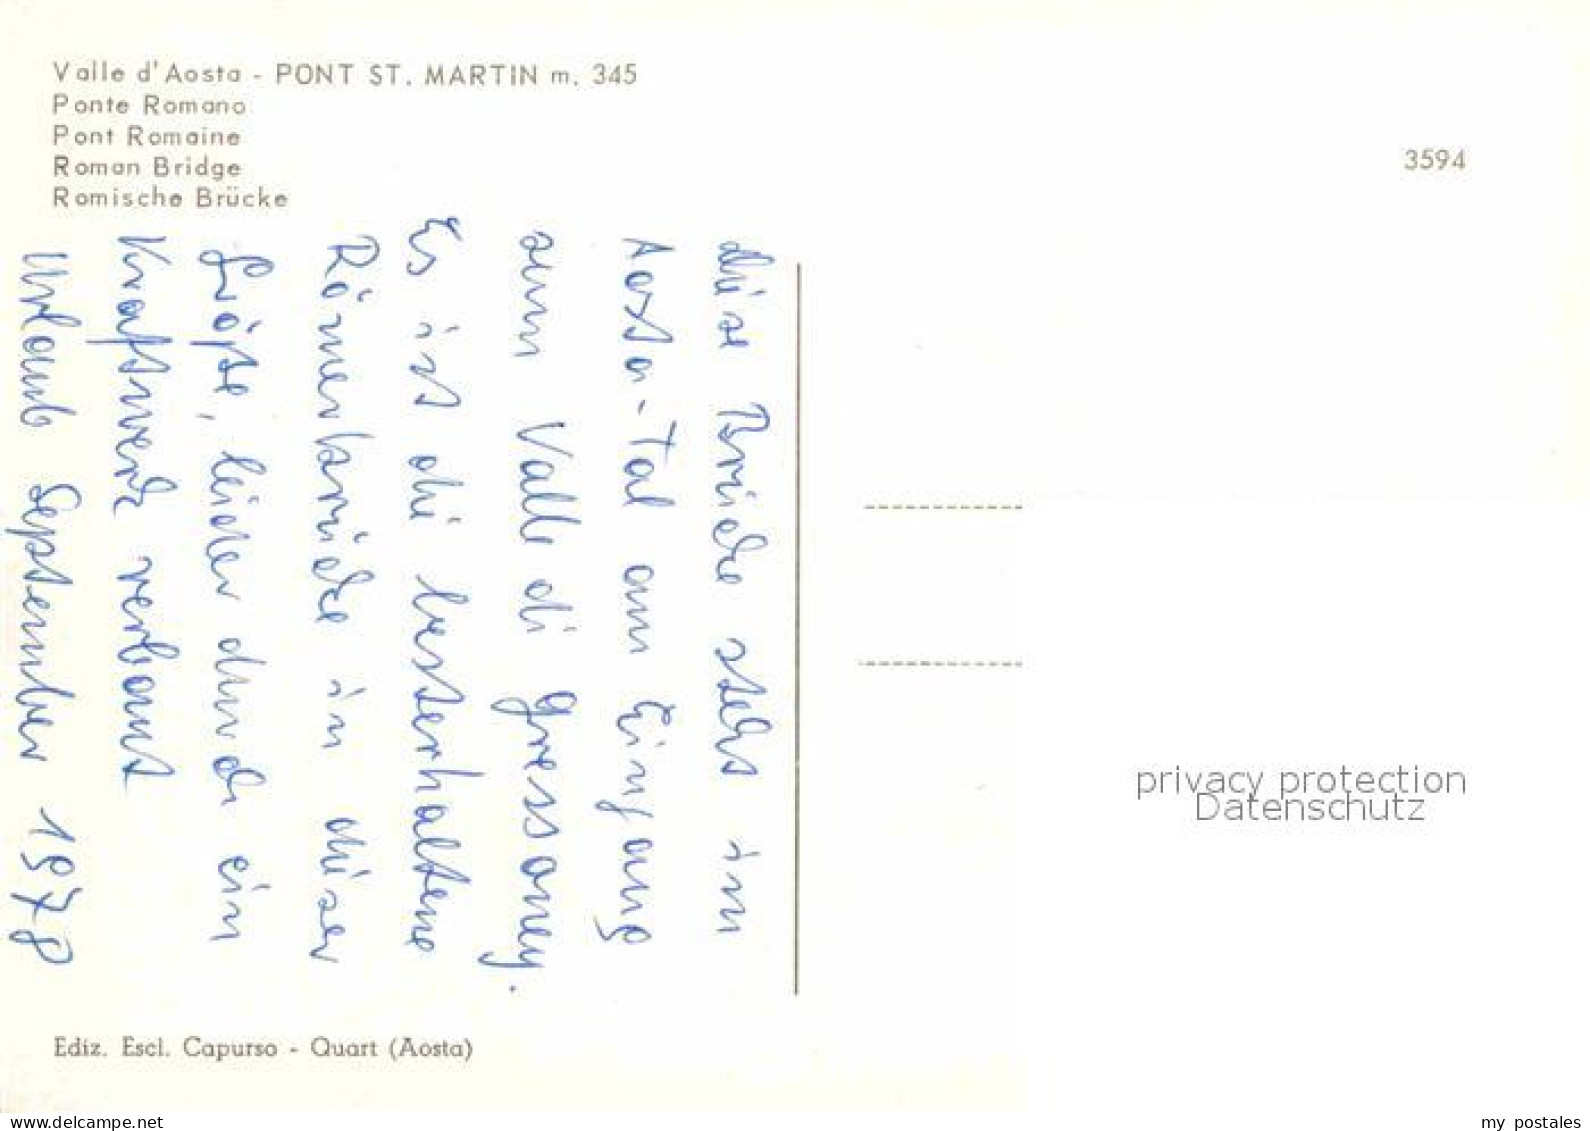 Valle d'Aosta - PONT ST. MARTIN m. 345
Ponte Romano
Pont Romaine
Roman Bridge
Romische Brücke
3594
diese Brücke steht im
Aosta-Tal am Eingang
zum Valle di Gressoney.
Es ist die besterhaltene
Römerbrücke in dieser
Größe, leider durch ein
Kraftwerk verbaut
Urlaub September 1978
privacy protection
Datenschutz
Ediz. Escl. Capurso - Quart (Aosta)
www.delcampe.net
my_postales